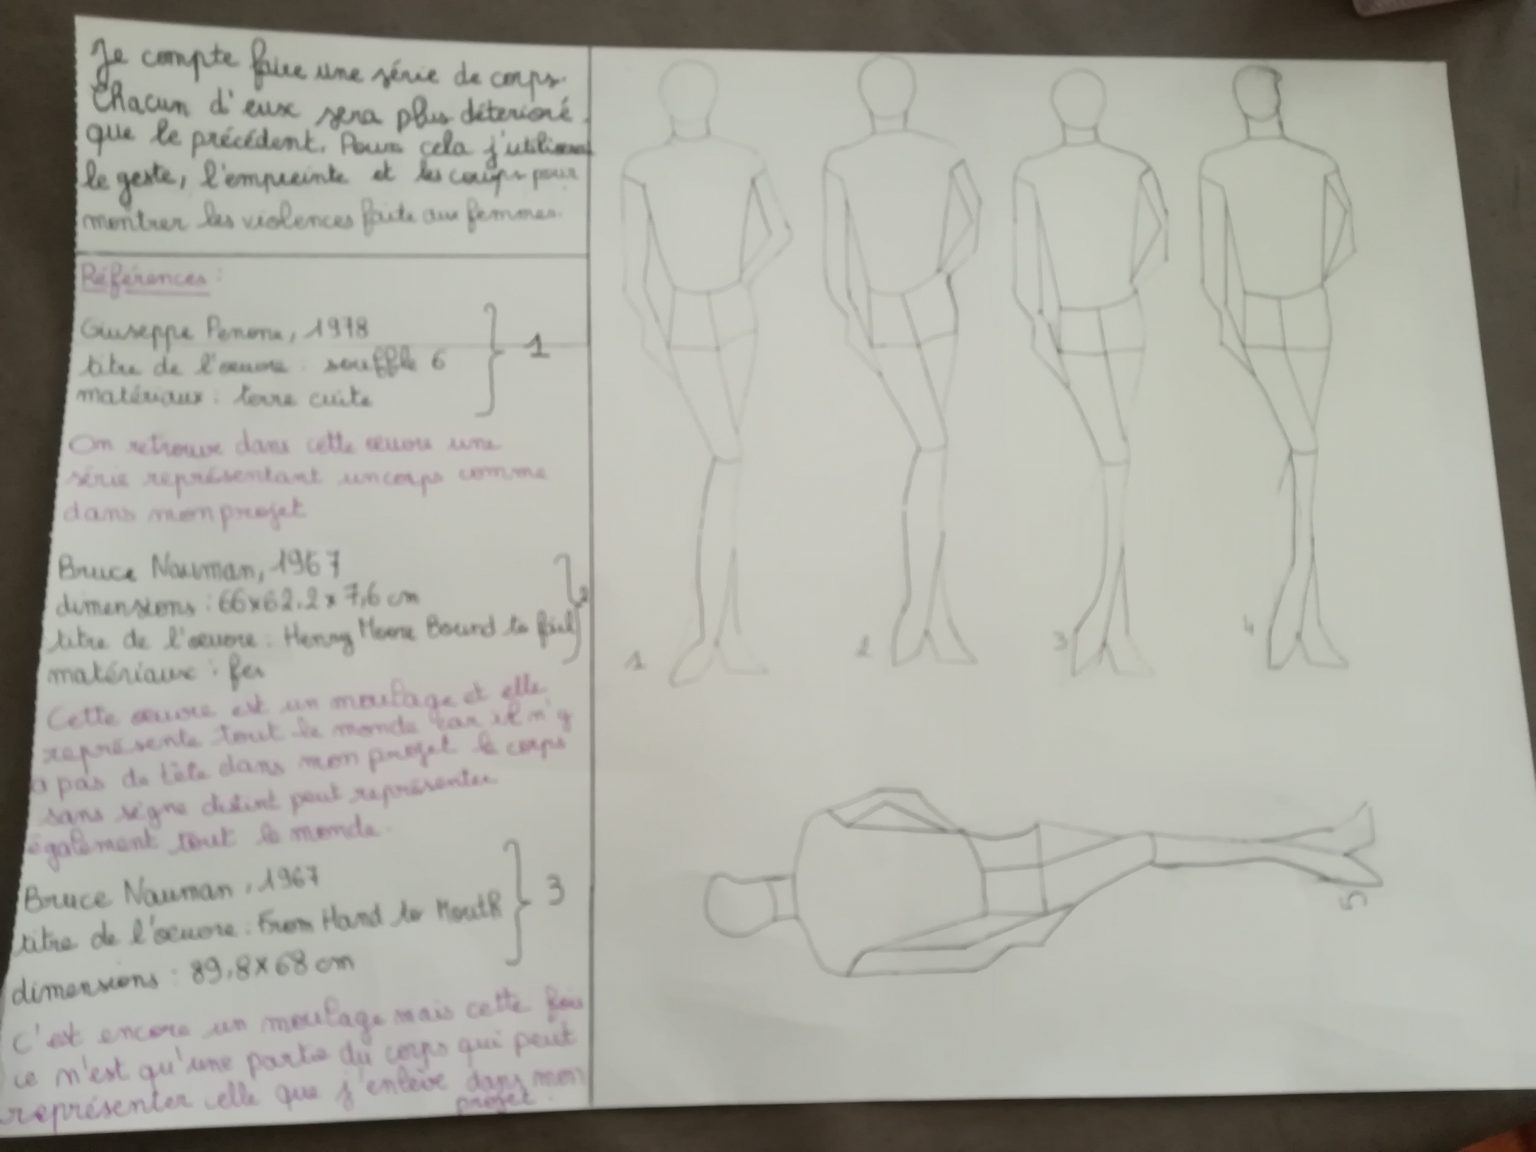 Je compte faire une série de corps.
Chacun d'eux sera plus déterioré
que le précédent. Pour cela j'utiliserai
le geste, l'empreinte et les coups pour
montrer les violences faite aux femmes.
Références :
Giuseppe Penone, 1978
titre de l'œuvre : souffle 6
matériaux : terre cuite
1
On retrouve dans cette œuvre une
série représentant un corps comme
dans mon projet
Bruce Nauman, 1967
dimensions : 66x62,2x7,6 cm
titre de l'œuvre : Henry Moore Bound to fail
matériaux : fer
2
Cette œuvre est un moulage et elle
représente tout le monde car il n'y
a pas de tête dans mon projet le corps
sans signe distint peut représenter
également tout le monde.
Bruce Nauman, 1967
titre de l'œuvre : From Hand to Mouth
dimensions : 89,8x68 cm
3
C'est encore un moulage mais cette fois
ce n'est qu'une partie du corps qui peut
représenter celle que j'enlève dans mon
projet.
1
2
3
4
5